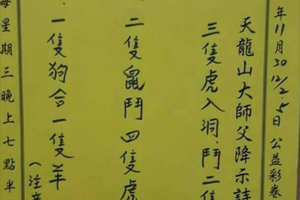 年11月30 12/2、5日公益彩卷
天龍山大師父降示詩
三隻虎入洞鬥二隻
二隻鼠鬥四隻虎
一隻狗合一隻羊
(注意
每星期三晚上七點半